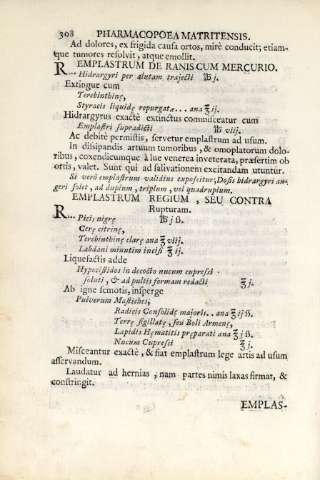 308 PHARMACOPOEA MATRITENSIS.
Ad dolores, ex frigida causa ortos, mirè conducit; etiam-
que tumores resolvit, atque emollit.
EMPLASTRUM DE RANIS CUM MERCURIO.
R.... Hidrargyri per alutam trajecti ℔ j.
Extingue cum
Terebinthinę,
Styracis liquidę repurgatę... ana ℥ ij.
Hidrargyrus exactè extinctus commisceatur cum
Emplastri supradicti ℔ viij.
Ac debitè permistis, servetur emplastrum ad usum.
In dissipandis artuum tumoribus, & omoplatorum dolo-
ribus, coxendicumque à lue venerea inveterata, præsertim ob
ortis, valet. Sunt qui ad salivationem excitandam utuntur.
Si verò emplastrum validius exposcitur, Dosis hidrargyri au-
geri solet, ad duplum, triplum, vel quadruplum.
EMPLASTRUM REGIUM, SEU CONTRA
Rupturam.
R.... Picis, nigrę ℔ j ß.
Cerę citrinę,
Terebinthinę clarę ana ℥ viij.
Labdani minutim incisi ℥ ij.
Liquefactis adde
Hypocistidos in decocto nucum cupressi
soluti, & ad pultis formam redacti ℥ j.
Ab igne semotis, insperge
Pulverum Mastiches,
Radicis Consolidę majoris.. ana ℥ ij ß.
Terrę sigillatę, seu Boli Armeni,
Lapidis Hęmatitis pręparati ana ℥ j ß.
Nucum Cupressi ℥ j.
Misceantur exactè, & fiat emplastrum lege artis ad usum
asservandum.
Laudatur ad hernias, nam partes nimis laxas firmat, &
constringit.
EMPLAS-